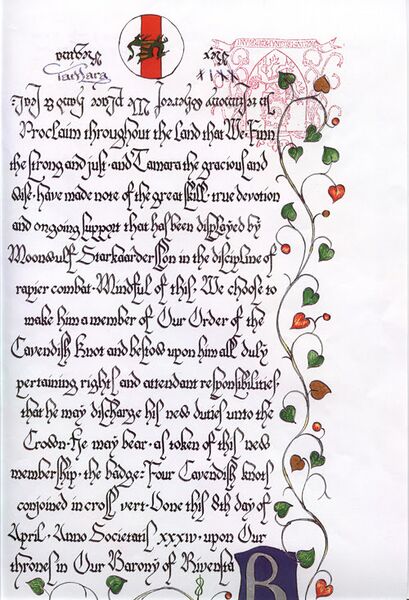 Tamara
Proclaim throughout the land that We · Finn
the strong and just · and Tamara the gracious and
wise · have made note of the great skill · true devotion
and ongoing support that has been displayed by
Moonwulf Starkaardersson in the discipline of
rapier combat · Mindful of this · We choose to
make him a member of Our Order of the
Cavendish Knot and bestow upon him all duly
pertaining rights and attendant responsibilities ·
that he may discharge his new duties unto the
Crown · He may bear · as token of this new
membership · the badge: Four Cavendish knots
conjoined in cross vert · Done this 8th day of
April · Anno Societatis xxxiv · upon Our
thrones in Our Barony of Rivensta
B